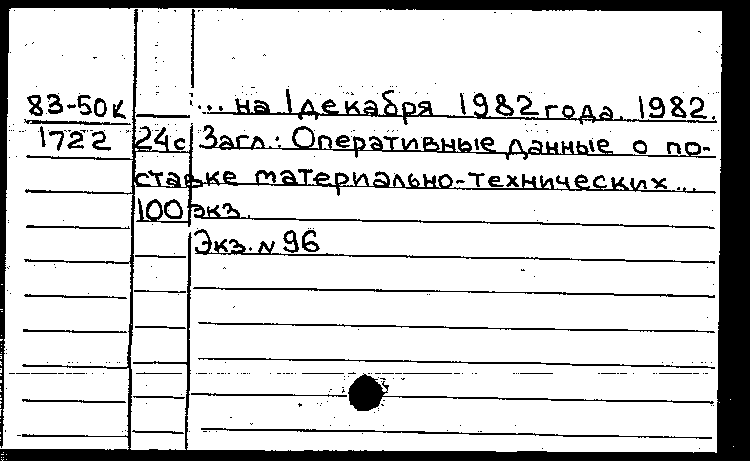 83-50к ... на 1 декабря 1982 года. 1982.
1722 24с Загл.: Оперативные данные о по-
ставке материально-технических...
100 экз.
Экз. N 96